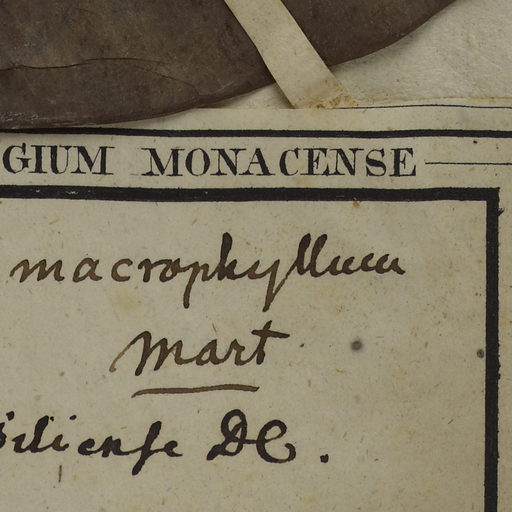 GIUM MONACENSE
macrophyllum
Mart
siliense DC.